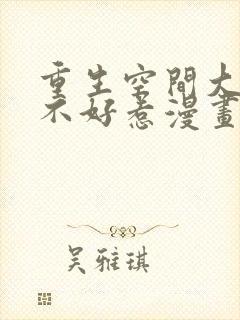 重生空間大
不好惹漫畫
吴雅琪